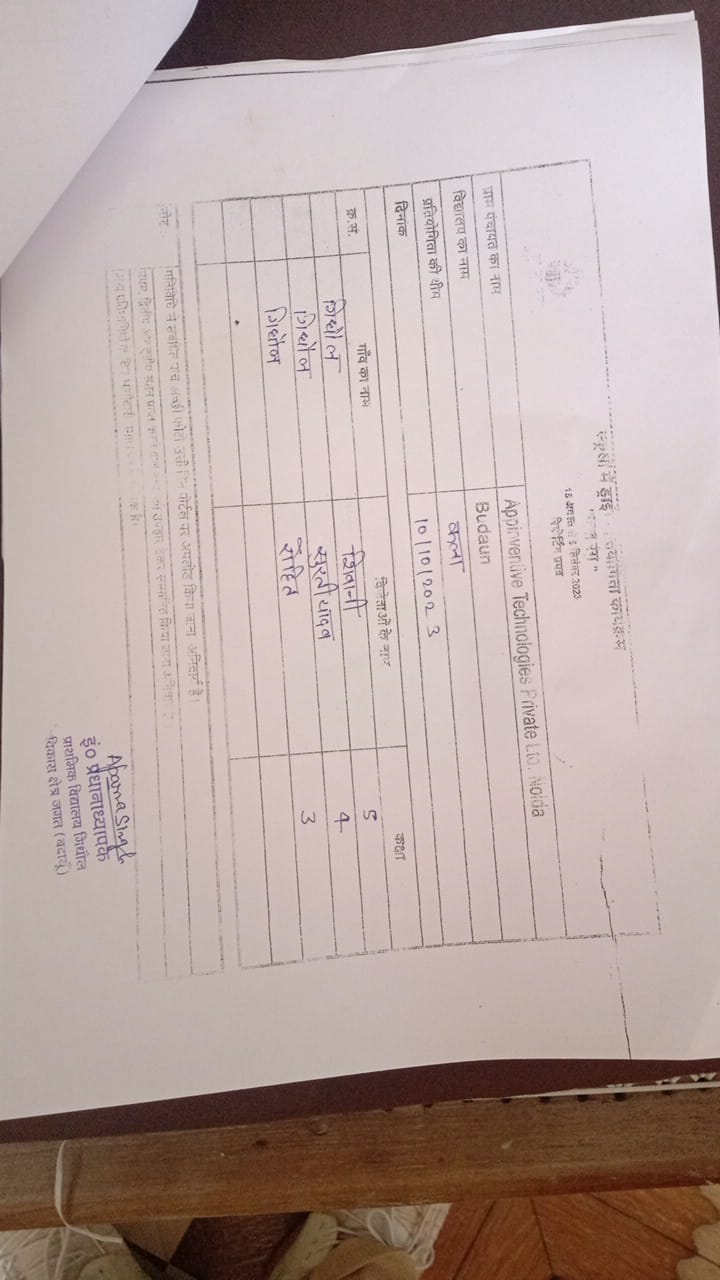 स्कूलों में हुई
15 अगस्त से 5 सितंबर 2023
रिपोर्टिंग प्रपत्र
ग्राम पंचायत का नाम Appinventive Technologies Private Ltd. Noida
विद्यालय का नाम Budaun
प्रतियोगिता की थीम कला
दिनांक 10/10/2023
क्र.सं. गाँव का नाम विजेताओं के नाम कक्षा
गिधौल शिवानी 5
गिधौल सुरती यादव 4
गिधौल रोहित 3
नोट
गतिविधि से संबंधित पांच अच्छी फोटो उसी दिन पोर्टल पर अपलोड किया जाना अनिवार्य है।
प्रथम द्वितीय और तृतीय स्थान प्राप्त करने
Aparna Singh
इं० प्रधानध्यापक
प्राथमिक विद्यालय गिधौल
विकास क्षेत्र जगत (बदायूँ)